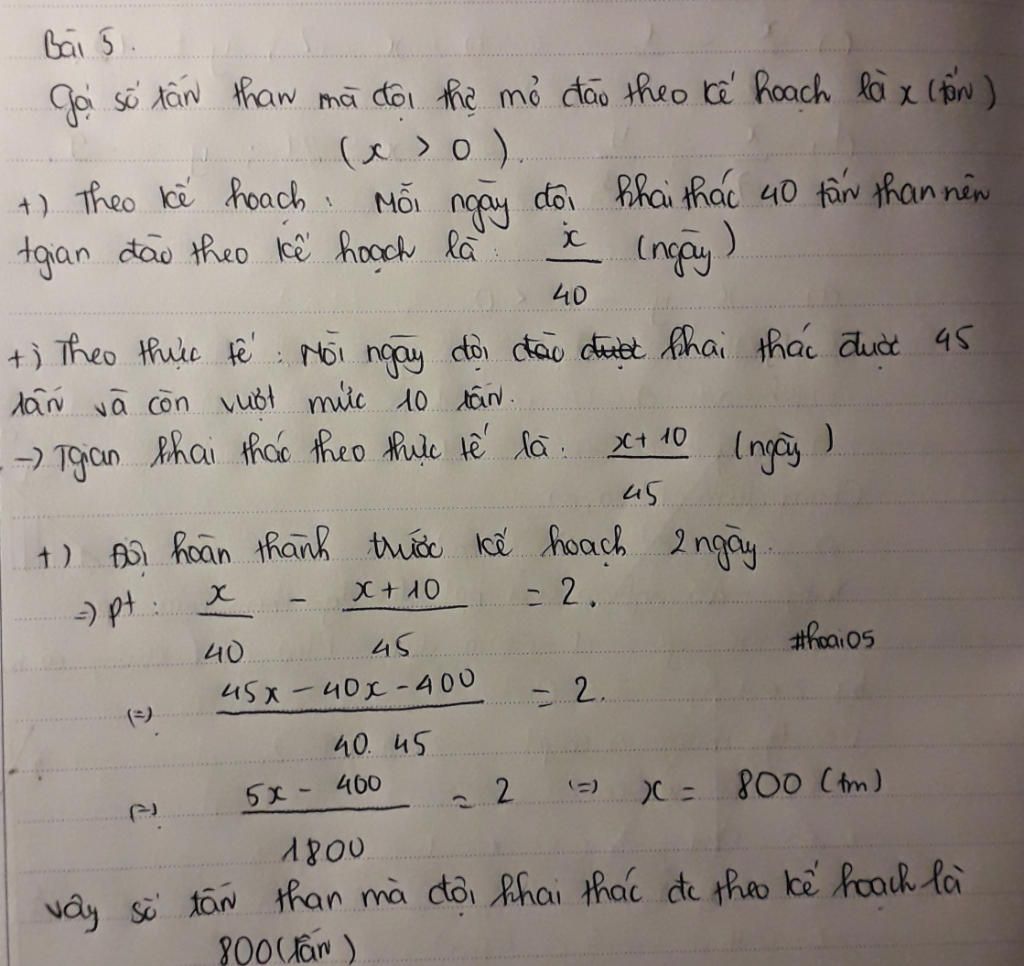 Bài 5.
Gọi số tấn than mà đội thợ mỏ đào theo kế hoạch là x (tấn)
(x > 0).
+) Theo kế hoạch : Mỗi ngày đội khai thác 40 tấn than nên
tgian đào theo kế hoạch là : x/40 (ngày)
+) Theo thực tế : Mỗi ngày đội đào được khai thác được 45
tấn và còn vượt mức 10 tấn.
-> Tgian khai thác theo thực tế là : x+10/45 (ngày)
+) Đội hoàn thành trước kế hoạch 2 ngày.
=> pt : x/40 - x+10/45 = 2.
#hoai05
(=) 45x - 40x - 400/40. 45 = 2.
(=) 5x - 400/1800 = 2 (=) x = 800 (tm)
Vậy số tấn than mà đội khai thác đc theo kế hoạch là
800 (tấn)